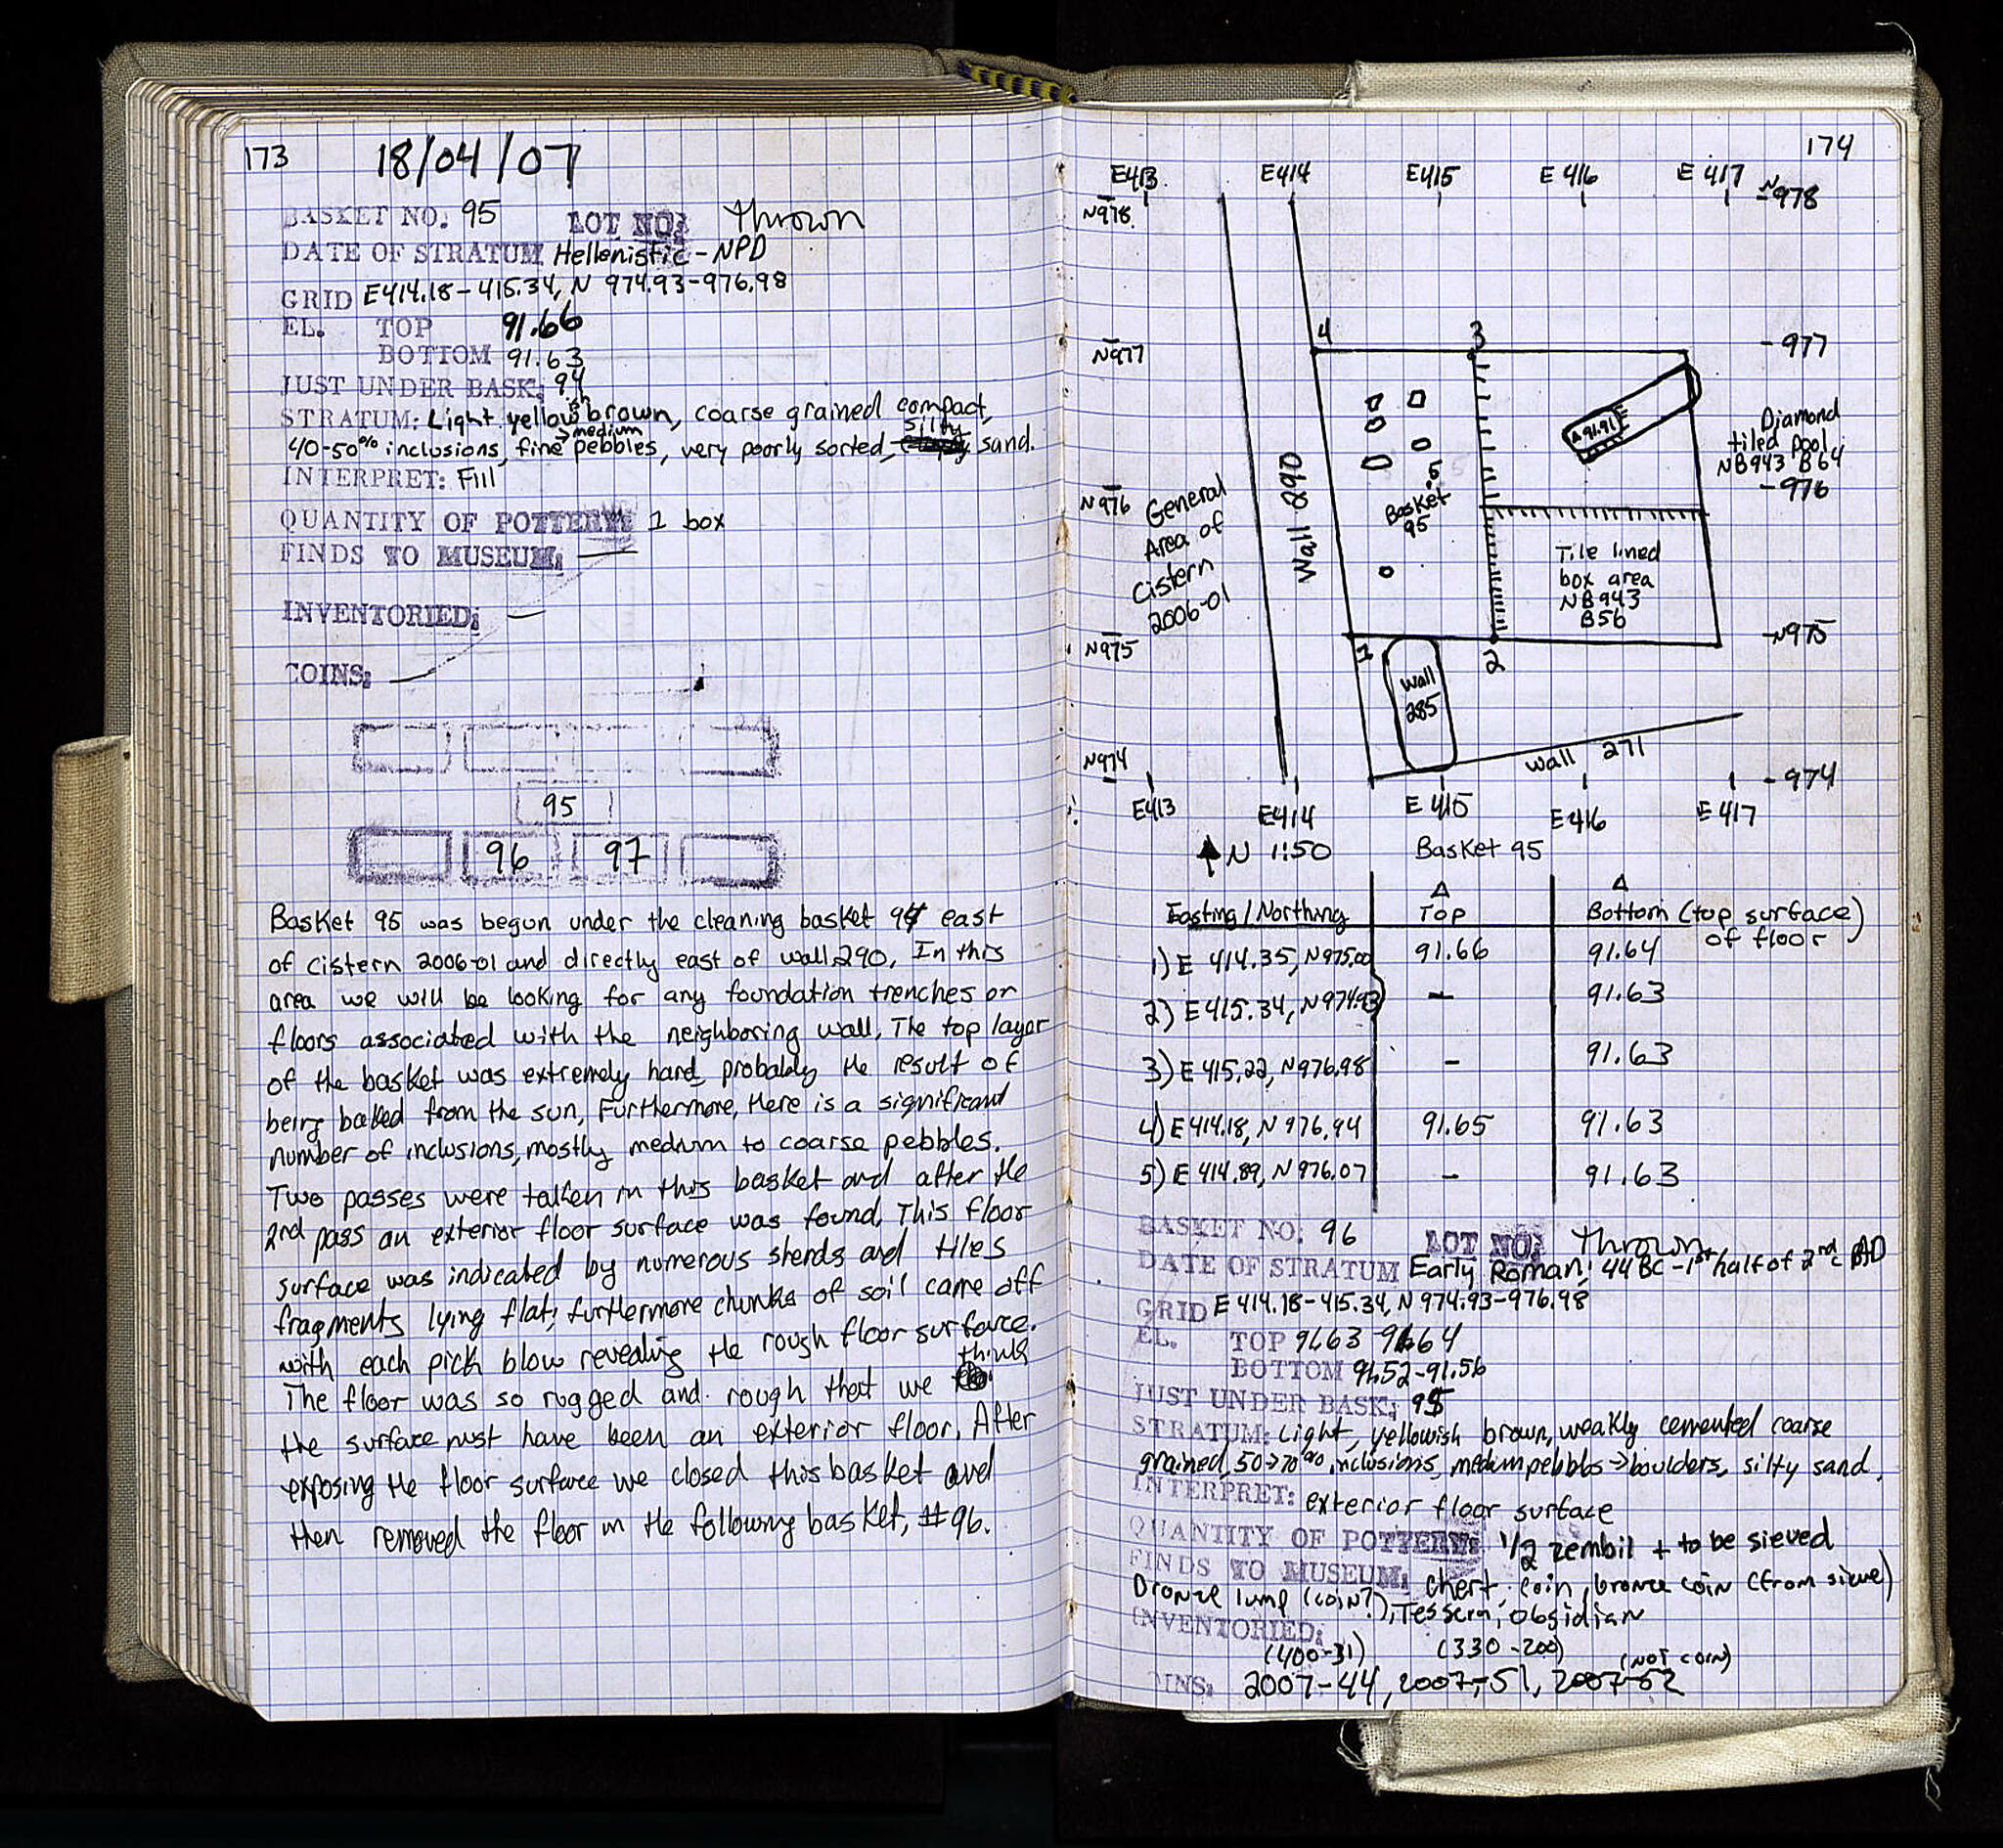 173 18/04/07
BASKET NO. 95 LOT NO: Thrown
DATE OF STRATUM Hellenistic - NPD
GRID E414.18-415.34, N 974.93-976.98
EL. TOP 91.66
BOTTOM 91.63
JUST UNDER BASK: 94
STRATUM: Light yellowish brown, coarse grained compact,
40-50% inclusions, fine → medium pebbles, very poorly sorted, silty sand.
INTERPRET: Fill
QUANTITY OF POTTERY: 1 box
FINDS TO MUSEUM: —
INVENTORIED: —
COINS: —
95
96 97
Basket 95 was begun under the cleaning basket 94 east
of cistern 2006-01 and directly east of wall 290. In this
area we will be looking for any foundation trenches or
floors associated with the neighboring wall. The top layer
of the basket was extremely hard probably the result of
being baked from the sun, Furthermore, there is a significant
number of inclusions, mostly medium to coarse pebbles.
Two passes were taken in this basket and after the
2nd pass an exterior floor surface was found. This floor
surface was indicated by numerous sherds and tiles
fragments lying flat; furthermore chunks of soil came off
with each pick blow revealing the rough floor surface.
The floor was so rugged and rough that we think
the surface must have been an exterior floor. After
exposing the floor surface we closed this basket and
then removed the floor in the following basket, #96.
174
E413 E414 E415 E416 E417
N978 N978
4 3
N977 -977
A 91.91
Diamond
tiled pool
NB943 B64
5
Basket
95
N976 -976
General
Area of
Cistern
2006-01
Wall 290
Tile lined
box area
NB943
B56
N975 -N975
1 2
Wall
285
Wall 271
N974 -974
E413 E414 E415 E416 E417
N 1:50 Basket 95
Easting/Northing Δ Top Δ Bottom (top surface)
of floor
1) E 414.35, N975.00 91.66 91.64
2) E415.34, N974.93 - 91.63
3) E415.22, N976.98 - 91.63
4) E414.18, N 976.94 91.65 91.63
5) E 414.89, N 976.07 - 91.63
BASKET NO: 96 LOT NO: Thrown
DATE OF STRATUM Early Roman; 44 BC - 1st half of 2nd c AD
GRID E 414.18-415.34, N 974.93-976.98
EL. TOP 91.63-91.64
BOTTOM 91.52-91.56
JUST UNDER BASK: 95
STRATUM: Light, yellowish brown, weakly cemented coarse
grained, 50→70% inclusions, medium pebbles → boulders, silty sand.
INTERPRET: exterior floor surface
QUANTITY OF POTTERY: 1/2 zembil + to be sieved
FINDS TO MUSEUM: chert, coin, bronze coin (from sieve)
Bronze lump (coin?), Tessera, obsidian
INVENTORIED:
(400-31) (330-200) (NOT COIN)
INS: 2007-44, 2007-51, 2007-52